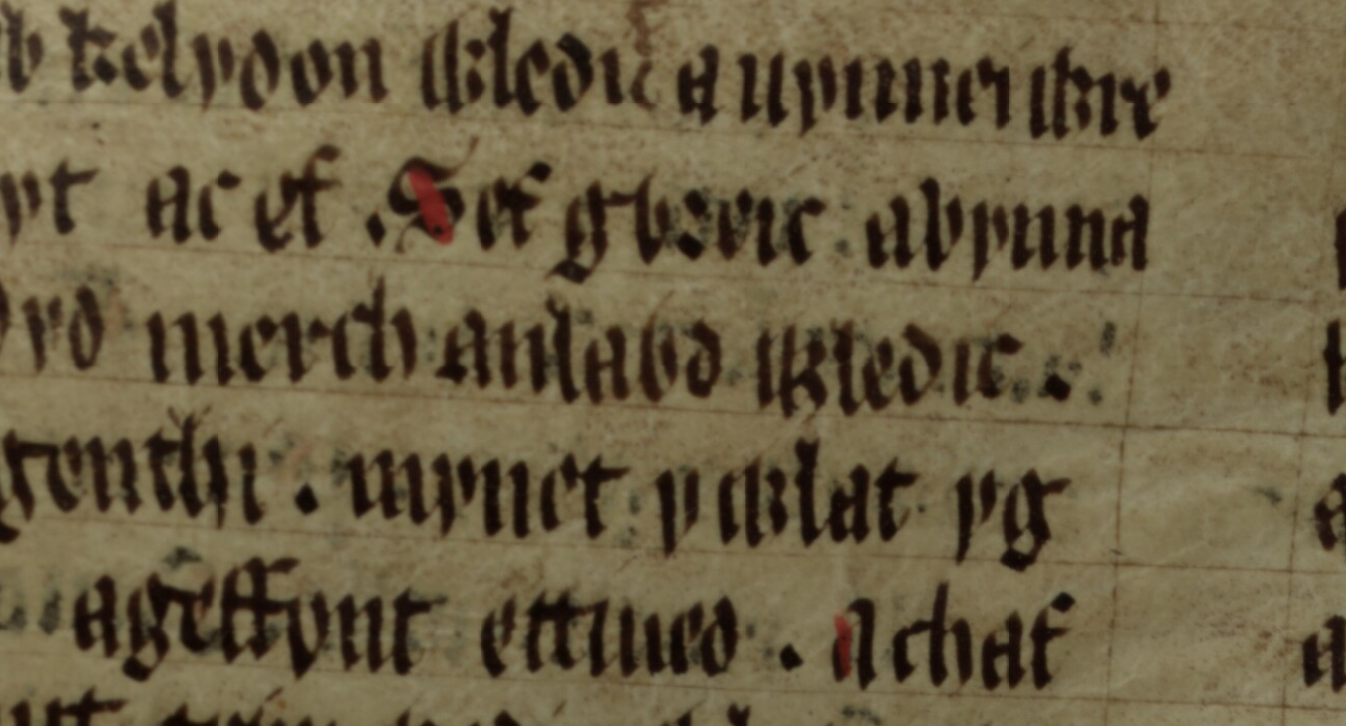 b kelydon wledic auynnei wre
yt ac ef . Sef gỽreic avynna
yd merch anlaỽd wledic .
genthi . mynet y wlat yg
ageffynt ettiued . Achaf